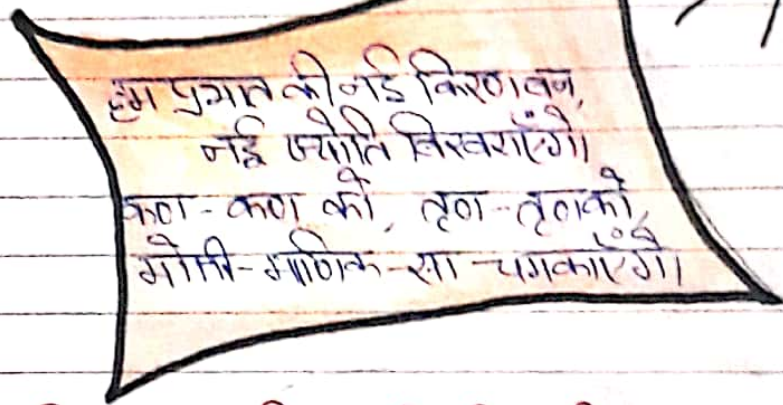 हम प्रभात की नई किरण बन,
नई ज्योति बिखराएँगे।
कण-कण को, तृण-तृण को,
मोती-माणिक-सा चमकाएँगे।